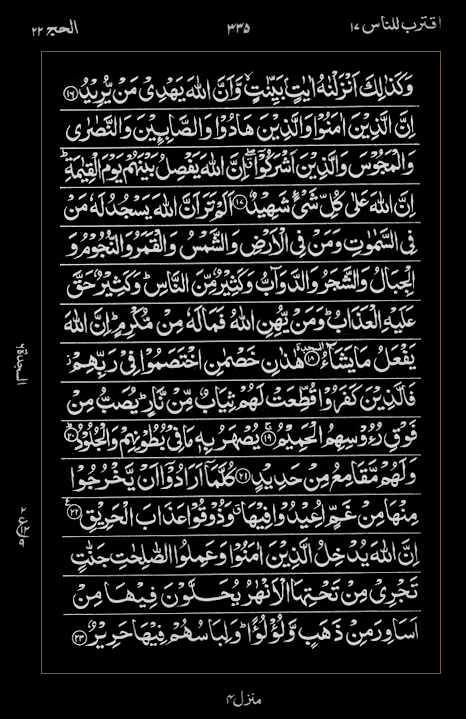 اقترب للناس ۱۷
۳۳۵
الحج ۲۲
وَكَذٰلِكَ اَنْزَلْنٰهُ اٰيٰتٍۭ بَيِّنٰتٍ ۙ وَّاَنَّ اللّٰهَ يَهْدِىْ مَنْ يُّرِيْدُ ﴿۱۶﴾
اِنَّ الَّذِيْنَ اٰمَنُوْا وَالَّذِيْنَ هَادُوْا وَالصّٰبِـِٕيْنَ وَالنَّصٰرٰى
وَالْمَجُوْسَ وَالَّذِيْنَ اَشْرَكُوْۤا ۖ اِنَّ اللّٰهَ يَفْصِلُ بَيْنَهُمْ يَوْمَ الْقِيٰمَةِ ؕ
اِنَّ اللّٰهَ عَلٰى كُلِّ شَىْءٍ شَهِيْدٌ ﴿۱۷﴾ اَلَمْ تَرَ اَنَّ اللّٰهَ يَسْجُدُ لَهٗ مَنْ
فِى السَّمٰوٰتِ وَمَنْ فِى الْاَرْضِ وَالشَّمْسُ وَالْقَمَرُ وَالنُّجُوْمُ وَ
الْجِبَالُ وَالشَّجَرُ وَالدَّوَآبُّ وَكَثِيْرٌ مِّنَ النَّاسِ ؕ وَكَثِيْرٌ حَقَّ
عَلَيْهِ الْعَذَابُ ؕ وَمَنْ يُّهِنِ اللّٰهُ فَمَا لَهٗ مِنْ مُّكْرِمٍ ؕ اِنَّ اللّٰهَ
يَفْعَلُ مَا يَشَآءُ ﴿۱۸﴾ السجدة هٰذٰنِ خَصْمٰنِ اخْتَصَمُوْا فِىْ رَبِّهِمْ ؗ
فَالَّذِيْنَ كَفَرُوْا قُطِّعَتْ لَهُمْ ثِيَابٌ مِّنْ نَّارٍ ؕ يُصَبُّ مِنْ
فَوْقِ رُءُوْسِهِمُ الْحَمِيْمُ ﴿۱۹﴾ يُصْهَرُ بِهٖ مَا فِىْ بُطُوْنِهِمْ وَالْجُلُوْدُ ؕ ﴿۲۰﴾
وَلَهُمْ مَّقَامِعُ مِنْ حَدِيْدٍ ﴿۲۱﴾ كُلَّمَاۤ اَرَادُوْۤا اَنْ يَّخْرُجُوْا
مِنْهَا مِنْ غَمٍّ اُعِيْدُوْا فِيْهَا ۗ وَذُوْقُوْا عَذَابَ الْحَرِيْقِ ﴿۲۲﴾
اِنَّ اللّٰهَ يُدْخِلُ الَّذِيْنَ اٰمَنُوْا وَعَمِلُوا الصّٰلِحٰتِ جَنّٰتٍ
تَجْرِىْ مِنْ تَحْتِهَا الْاَنْهٰرُ يُحَلَّوْنَ فِيْهَا مِنْ
اَسَاوِرَ مِنْ ذَهَبٍ وَّلُؤْلُؤًا ؕ وَلِبَاسُهُمْ فِيْهَا حَرِيْرٌ ﴿۲۳﴾
السجدة ۶
منزل ۴